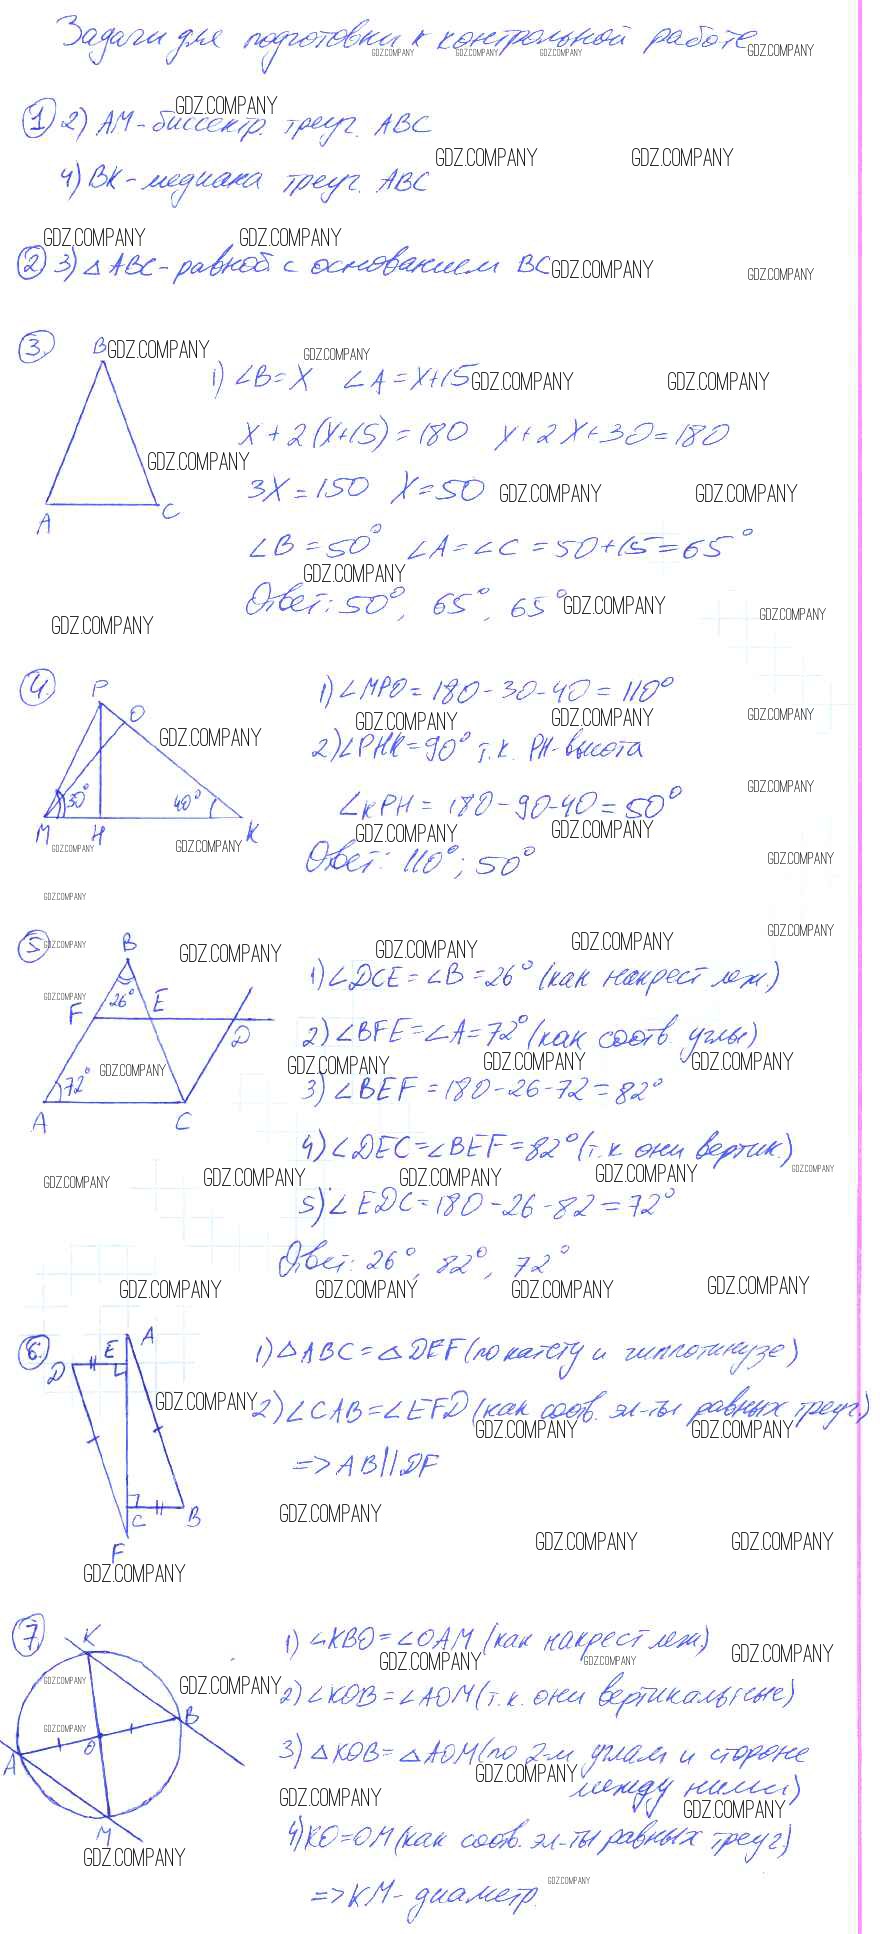 Задачи для подготовки к контрольной работе
① 2) AM - биссектр. треуг. ABC
4) BK - медиана треуг. ABC
② 3) △ABC - равноб с основанием BC
③.
B
A
C
1) ∠B = x ∠A = x+15
x + 2(x+15) = 180 x + 2x + 30 = 180
3x = 150 x = 50
∠B = 50° ∠A = ∠C = 50+15 = 65°
Ответ: 50°, 65°, 65°
④.
P
O
30°
40°
M
H
K
1) ∠MPO = 180 - 30 - 40 = 110°
2) ∠PHK = 90° т.к. PH - высота
∠KPH = 180 - 90 - 40 = 50°
Ответ: 110°; 50°
⑤
B
26°
E
F
D
72°
A
C
1) ∠DCE = ∠B = 26° (как накрест леж.)
2) ∠BFE = ∠A = 72° (как соотв. углы)
3) ∠BEF = 180 - 26 - 72 = 82°
4) ∠DEC = ∠BEF = 82° (т.к они вертик.)
5) ∠EDC = 180 - 26 - 82 = 72°
Ответ: 26°, 82°, 72°
⑥.
A
E
D
C
B
F
1) △ABC = △DEF (по катету и гиппотинузе)
2) ∠CAB = ∠EFD (как соотв. эл-ты равных треуг.)
=> AB || DF
⑦.
K
B
A
O
M
1) ∠KBO = ∠OAM (как накрест леж.)
2) ∠KOB = ∠AOM (т.к. они вертикальные)
3) △KOB = △AOM (по 2-м углам и стороне
между ними)
4) KO = OM (как соотв. эл-ты равных треуг)
=> KM - диаметр.
GDZ.COMPANY